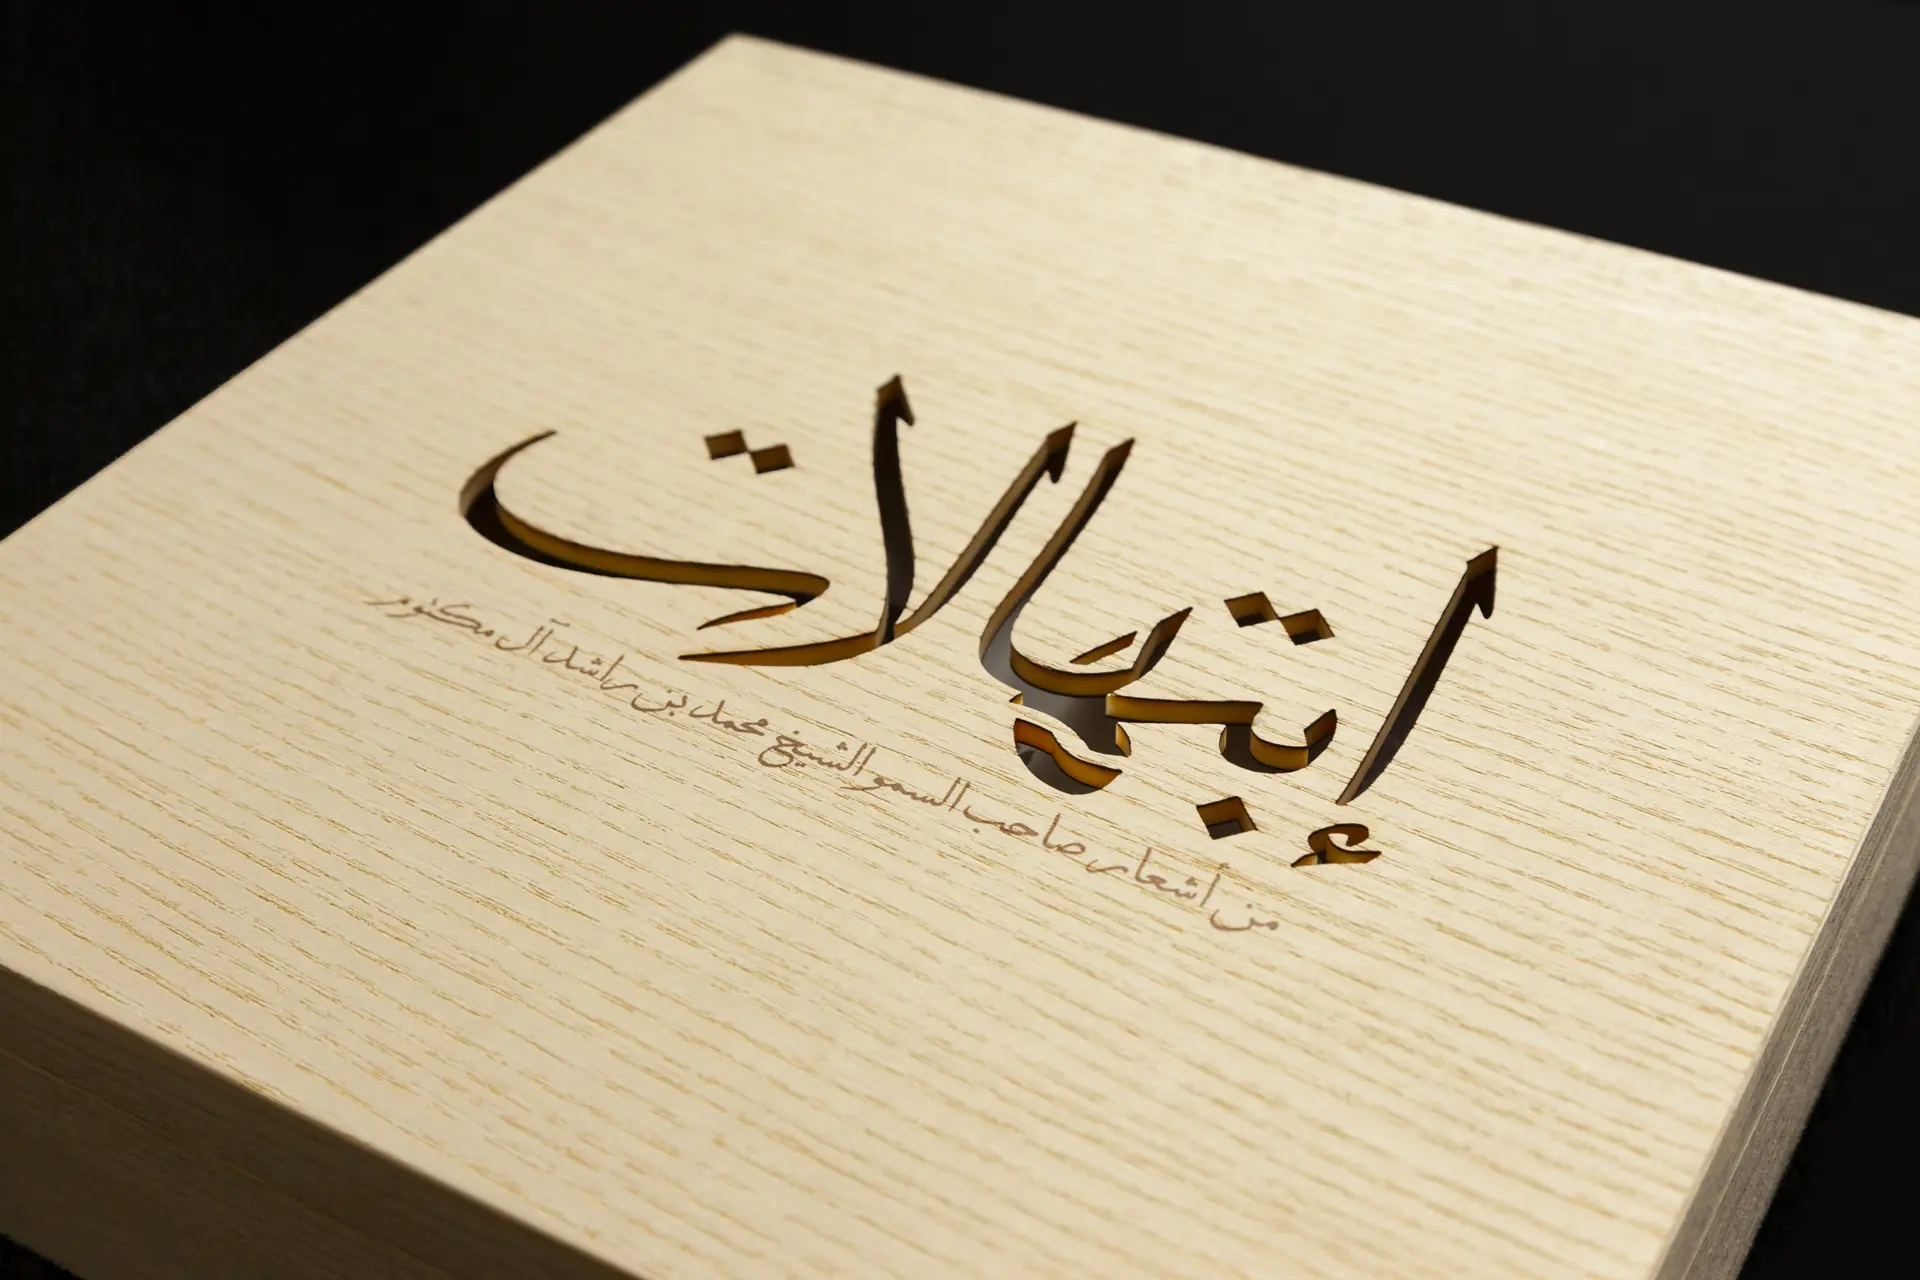 إبتهالات
من أشعار صاحب السمو الشيخ محمد بن راشد آل مكتوم